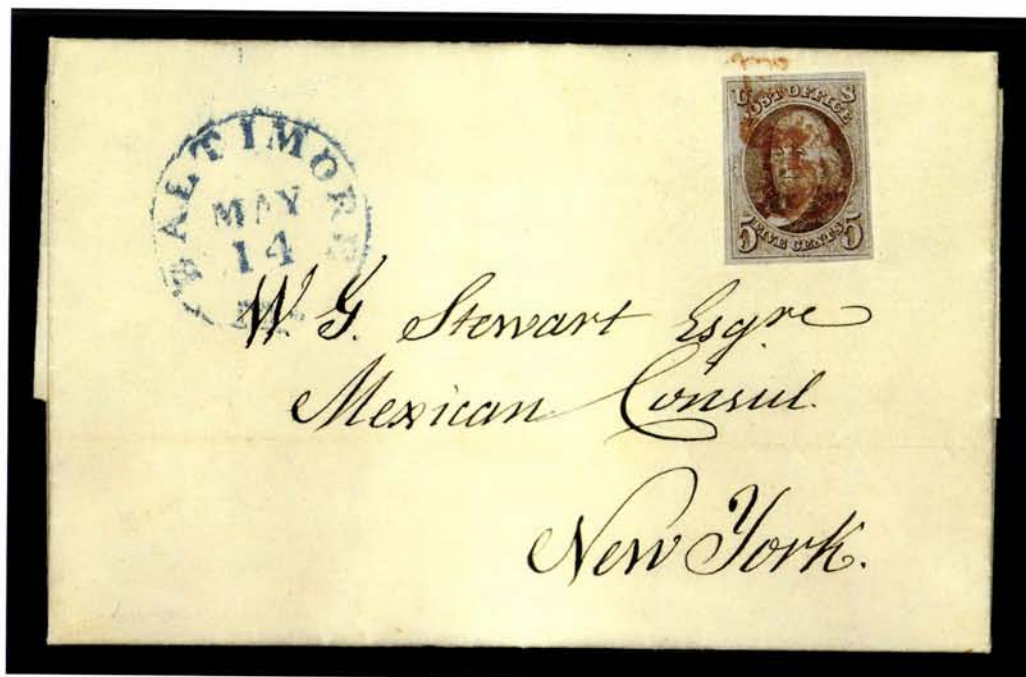 BALTIMORE
MAY
14
Md.
U S
POST OFFICE
FIVE CENTS
5 5
W. G. Stewart Esqre
Mexican Consul.
New York.